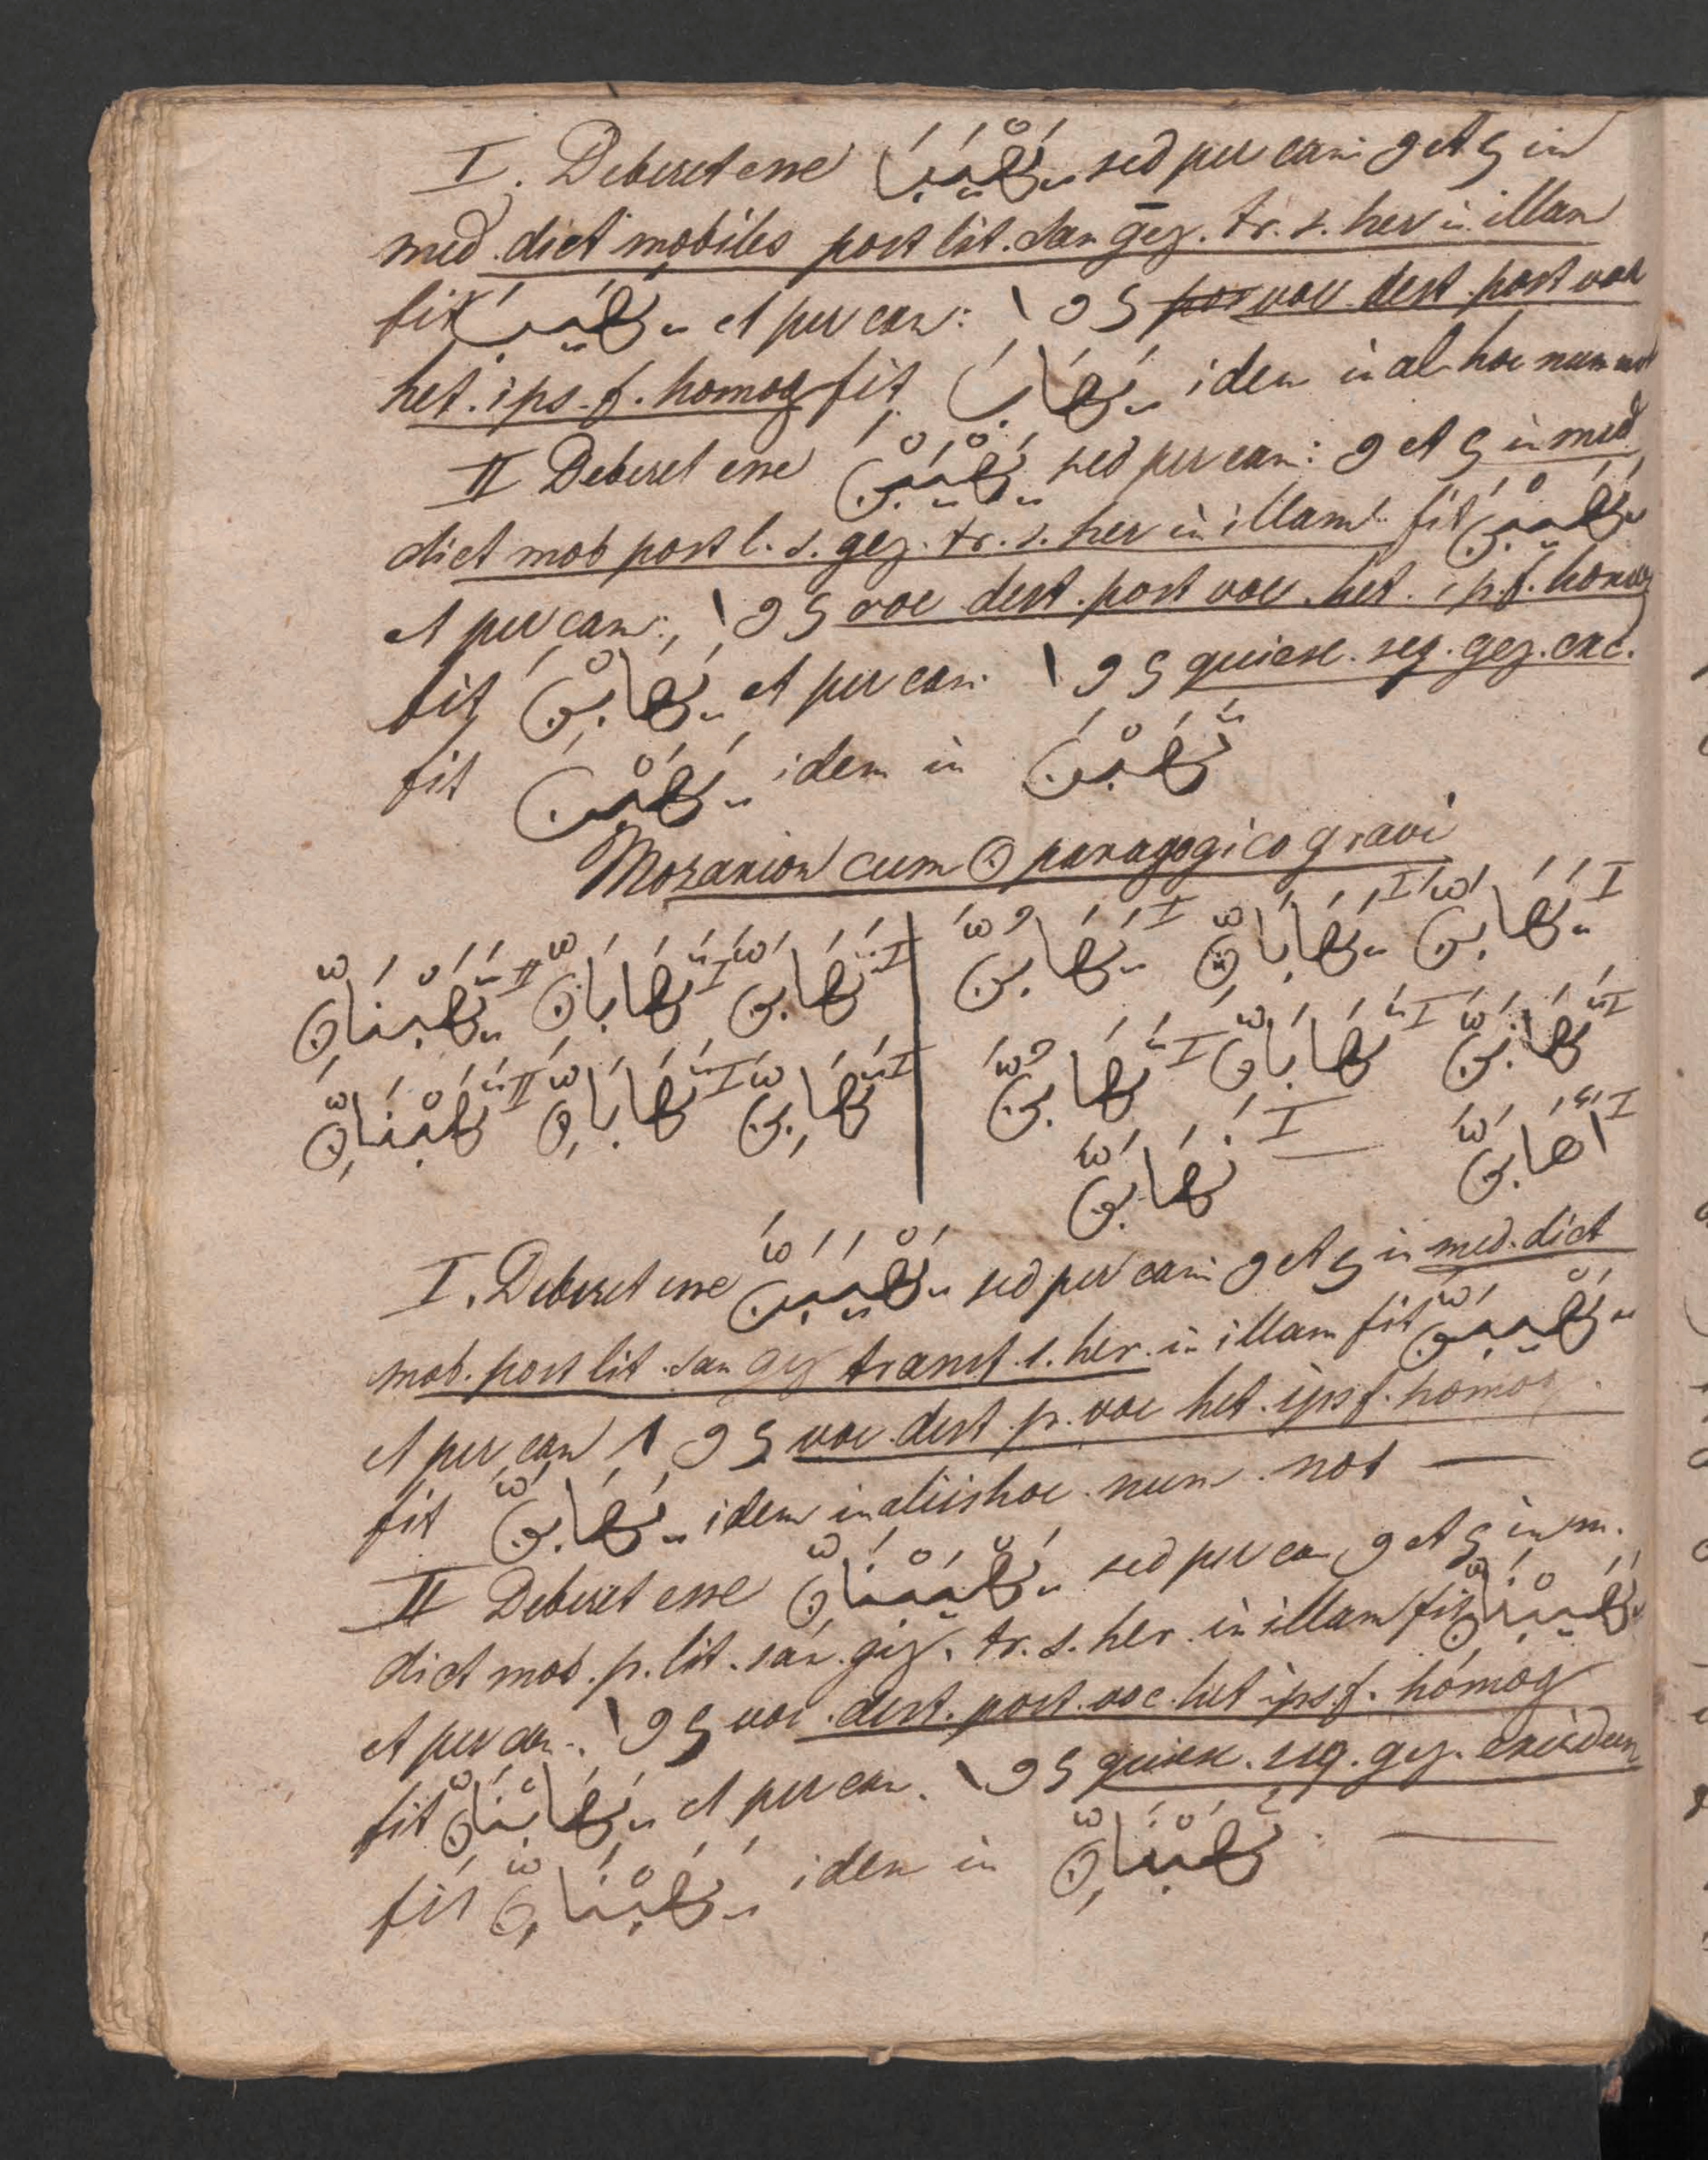 I. Deberet esse يَهْيَبَ sed per can: و et ي in
med. dict mobiles post lit. san gez. tr. s. her in illam
fit يَهَيْبَ et per can: ا و ي voc dest. post voc
het. ips. f. homog fit يَهَابَ idem in al hoc num not
II Deberet esse يَهْيَبْنَ sed per can: و et ي in med
dict mob post l. s. gez. tr. s. her in illam fit يَهَيْبْنَ
et per can: ا و ي voc dest. post voc. het. ips. f. homog
fit يَهَابْنَ et per can. ا و ي quiesc. seq. gez. exc.
fit يَهَبْنَ idem in تَهَبْنَ
Mozarion cum ن paragogico gravi
I يَهَابَنَّ I يَهَابَانِّ I يَهَابُنَّ I تَهَابَنَّ I تَهَابَانِّ II يَهَبْنَانِّ
I تَهَابَنَّ I تَهَابَانِّ I تَهَابُنَّ I تَهَابِنَّ I تَهَابَانِّ II تَهَبْنَانِّ
I اَهَابَنَّ — I نَهَابَنَّ
I. Deberet esse يَهْيَبَنَّ sed per can: و et ي in med. dict
mob. post lit. san gez transf. s. her. in illam fit يَهَيْبَنَّ
et per can ا و ي voc dest. p. voc het. ips f. homog.
fit يَهَابَنَّ idem in aliis hoc num. not —
II Deberet esse يَهْيَبْنَانِّ sed per can و et ي in m.
dict mob. p. lit. san. gez. tr. s. her. in illam fit يَهَيْبْنَانِّ
et per can. ا و ي voc. dest. post. voc. het ips. f. homog
fit يَهَابْنَانِّ et per can. ا و ي quiesc. seq. gez. excidunt
fit يَهَبْنَانِّ idem in تَهَبْنَانِّ —